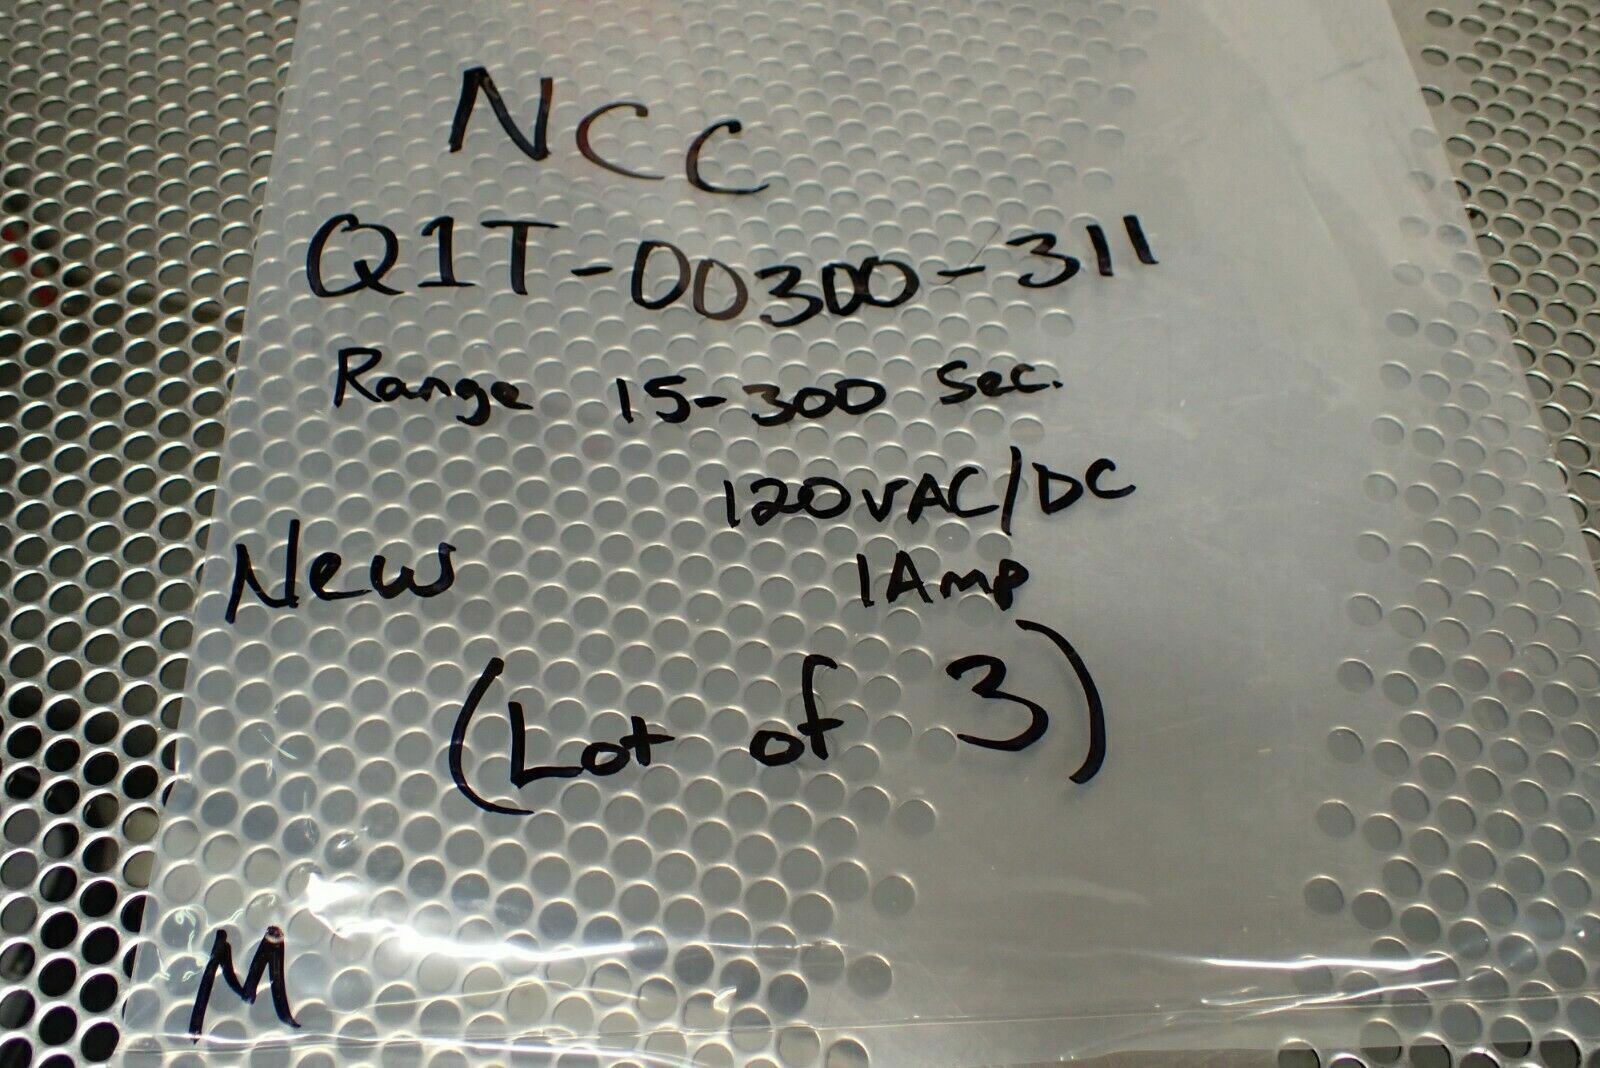 NCC
Q1T-00300-311
Range 15-300 Sec.
120VAC/DC
New 1Amp
(Lot of 3)
M